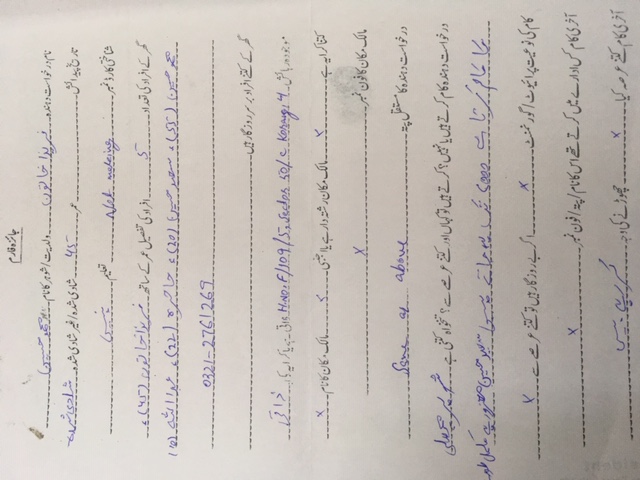 جائزہ فارم
نام درخواست دہندہ فریدا خاتون ولدیت/شوہر کا نام محمد حسین
تاریخ پیدائش عمر 45 شادی شدہ/غیر شادی شدہ شادی شدہ
شناختی کارڈ نمبر Not making تعلیم نہیں
گھر کے افراد کی تعداد 5 افراد کی تفصیل عمر کے ساتھ فریدا خاتون (45)،
محمد حسین (55)، سعید حسین (20)، حاجرہ (22)، عبداللہ (10)
0321-2761269
گھر کے کتنے افراد برسر روزگار ہیں
موجودہ رہائش H.NO. F/109/5, Sector 50/C Korangi 4 ذاتی ہے یا کرایہ کا: ذاتی
کتنا کرایہ ہے x مالک مکان رشتہ دار ہے یا اجنبی x مالک مکان کا نام x
مالک مکان کا فون نمبر x
درخواست دہندہ کا مستقل پتہ Same as above
درخواست دہندہ کام کرتے ہیں یا نہیں؟ کرتے ہیں تو کہاں اور کتنے عرصے سے؟ تنخواہ کتنی ہے شوہر
کا کام کرتا ہے 5000 تک حسین معزور ہے مکمل طور
کام کی نوعیت پرائیوٹ/گورنمنٹ x اگر بے روزگار ہیں تو کتنے عرصے سے x
آخری کام کس ادارے میں کرتے تھے اس کا نام/پتہ/فون نمبر x
آخری کام کتنے عرصہ کیا x چھوڑنے کی وجہ